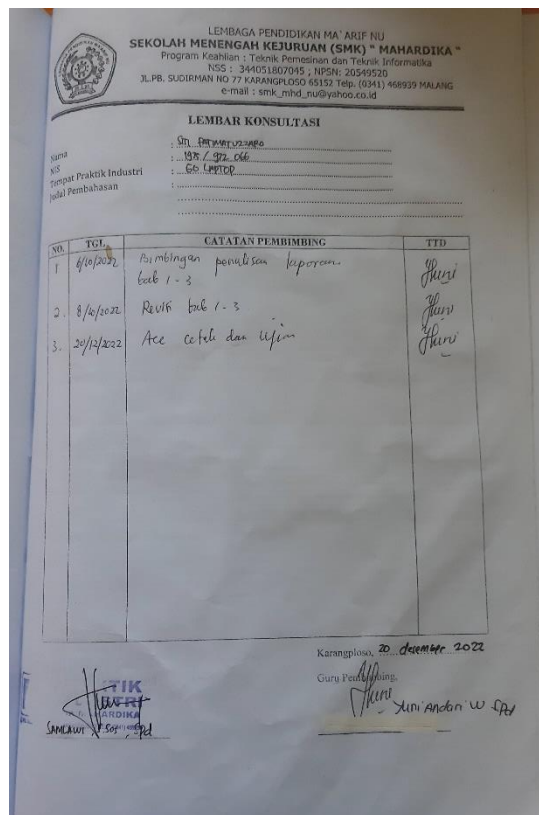 LEMBAGA PENDIDIKAN MA' ARIF NU
SEKOLAH MENENGAH KEJURUAN (SMK) " MAHARDIKA "
Program Keahlian : Teknik Pemesinan dan Teknik Informatika
NSS : 344051807045 ; NPSN: 20549520
JL.PB. SUDIRMAN NO 77 KARANGPLOSO 65152 Telp. (0341) 468939 MALANG
e-mail : smk_mhd_nu@yahoo.co.id
LEMBAR KONSULTASI
Nama : SITI FATIMATUZZAHRO
NIS : 1975 / 972 066
Tempat Praktik Industri : GO LAPTOP
Judul Pembahasan :
NO. TGL. CATATAN PEMBIMBING TTD
1 6/10/2022 Bimbingan penulisan laporan
bab 1 - 3
2. 8/10/2022 Revisi bab 1 - 3
3. 20/12/2022 Acc cetak dan Ujian
Karangploso, 20 desember 2022
Guru Pembimbing,
Yuni Andari W SPd
SAMLAWI S.Sos, Spd